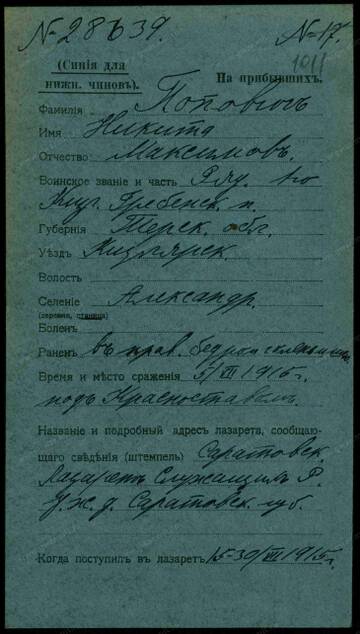 № 28639. № 17.
(Синія для
нижн. чиновъ). На прибывшихъ.
1011
Фамилія Поповичъ
Имя Никита
Отчество Максимовъ.
Воинское званіе и часть Ряд. 1го
Кизл. Гребенск. п.
Губернія Терск. обл.
Уѣздъ Кизлярск.
Волость
Селеніе Александр.
(деревня, станица)
Боленъ
Раненъ въ прав. бедро и
Время и мѣсто сраженія 5/VII 1915 г.
подъ Красноставомъ
Названіе и подробный адресъ лазарета, сообщаю-
щаго свѣдѣнія (штемпель) Саратовск.
Лазаретъ Служащихъ Р.
У. ж. д. Саратовск. губ.
Когда поступилъ въ лазаретъ 15-30/VII 1915 г.